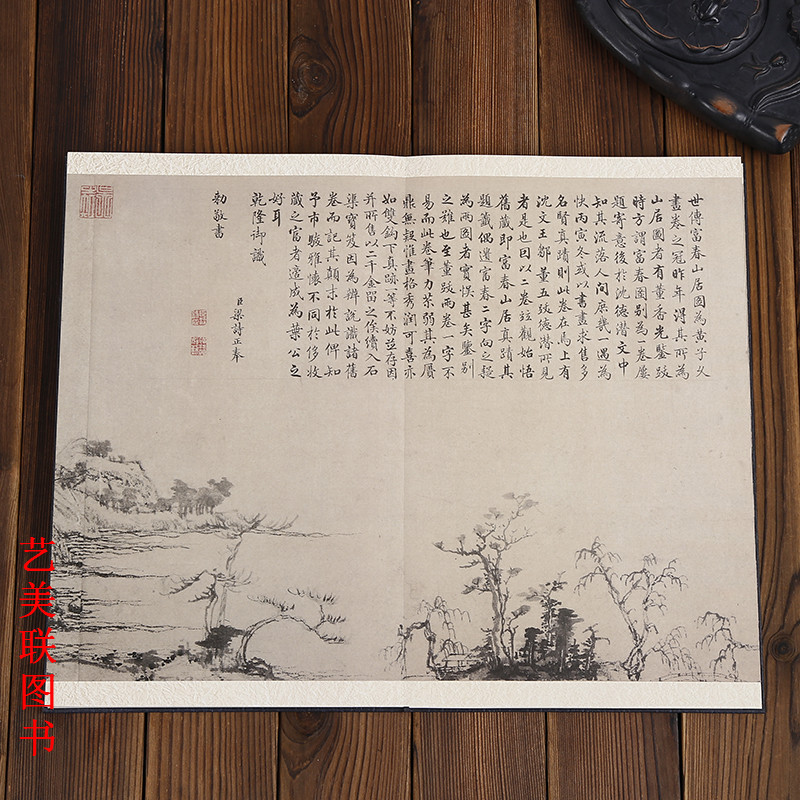 世傳富春山居圖為黃子久
畫卷之冠昨年得其所為
山居圖者有董香光鑒跋
時方謂富春圖別為一卷屢
題寄意後於沈德潜文中
知其流落人間庶幾一遇為
快丙寅冬或以書畫求售多
名賢真蹟則此卷在焉上有
沈文王鄒董五跋德潜所見
者是也因以二卷竝觀始悟
舊藏即富春山居真蹟其
題籖偶遺富春二字向之疑
為兩圖者實悞甚矣鑒別
之難也至董跋兩卷一字不
易而此卷筆力苶弱其為贗
鼎無疑惟畫格秀潤可喜亦
如雙鈎下真跡一等不妨竝存因
并所售以二千金留之俟續入石
渠寶笈因為辨說識諸舊
卷而記其顛末於此俾知
予市駿雅懷不同於侈收
藏之富者適成為葉公之
好耳
乾隆御識
臣梁詩正奉
勅敬書
艺美联图书